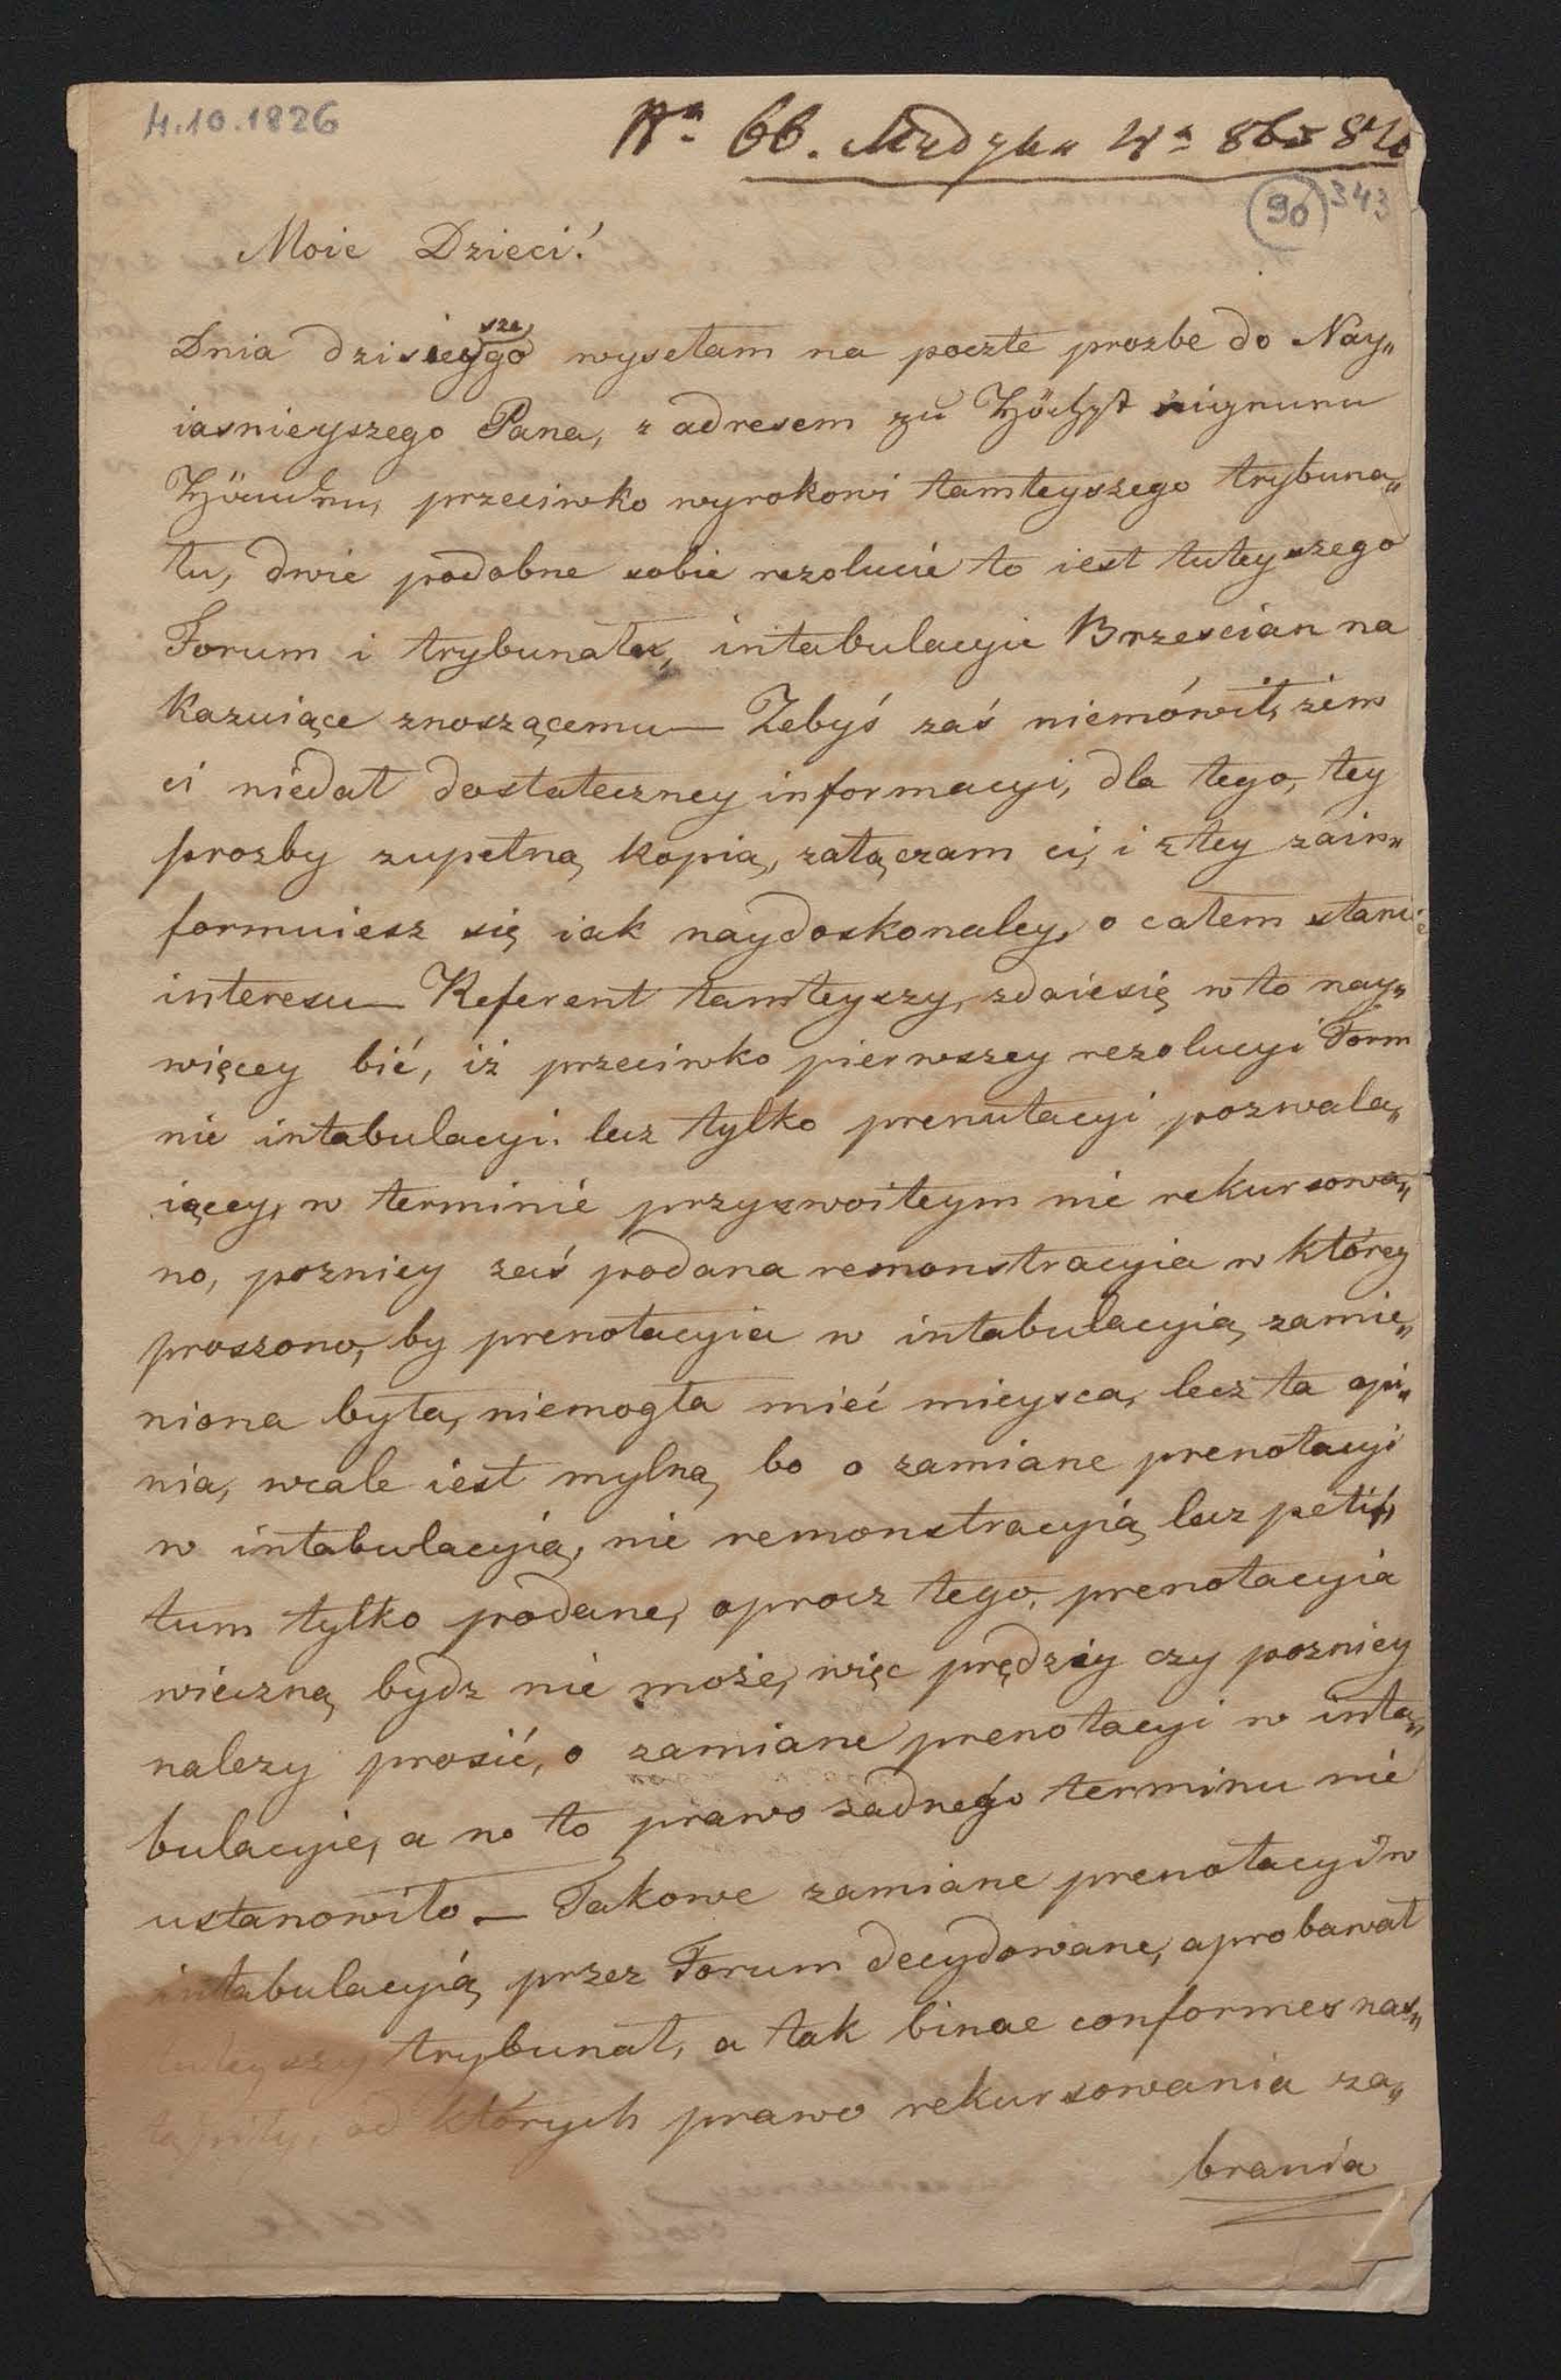 4.10.1826
90 343
Moie Dzieci!
Dnia dzisieyszego wysełam na poczte prozbe do Nay„
iasnieyszego Pana, z adresem zu Höchst eigenen
Händen, przeciwko wyrokowi tamteyszego trybuna„
łu, dwie podobne sobie rezolucie to iest tuteyszego
Forum i trybunału, intabulacyie Brzescian na
kazuiące znoszącemu — Zebyś zaś niemówił, zem
ci niedał dostateczney informacyi, dla tego, tey
prozby zupełną kopią, załączam ci, i z tey zain„
formuiesz się iak naydoskonaley, o całem stanie
interesu — Referent tamteyszy, zdaie się w to nay„
więcey bić, iż przeciwko pierwszey rezolucyi Form
nie intabulacyi. lecz tylko prenutacyi pozwala„
iącey, w terminie przyzwoiteym nie rekursowa„
no, pozniey zaś podana remonstracyia w którey
proszono, by prenotacyia w intabulacyią zamie„
niona była, niemogła mieć mieysca, lecz ta opi„
nia, wcale iest mylną, bo o zamiane prenotacyi
w intabulacyią, nie remonstracyią lecz peti„
tum tylko podane, oprocz tego, prenotacyia
wieczną bydz nie może, więc prędzey czy pozniey
nalezy prosić, o zamiane prenotacyi w inta„
bulacyie, a no to prawo zadnego terminu nie
ustanowiło — Takowe zamiane prenotacyi w
intabulacyią przez Forum decydowane, aprobawał
tuteyszy trybunał, a tak binae conformes nas„
tąpiły, od których prawo rekursowania za„
brania